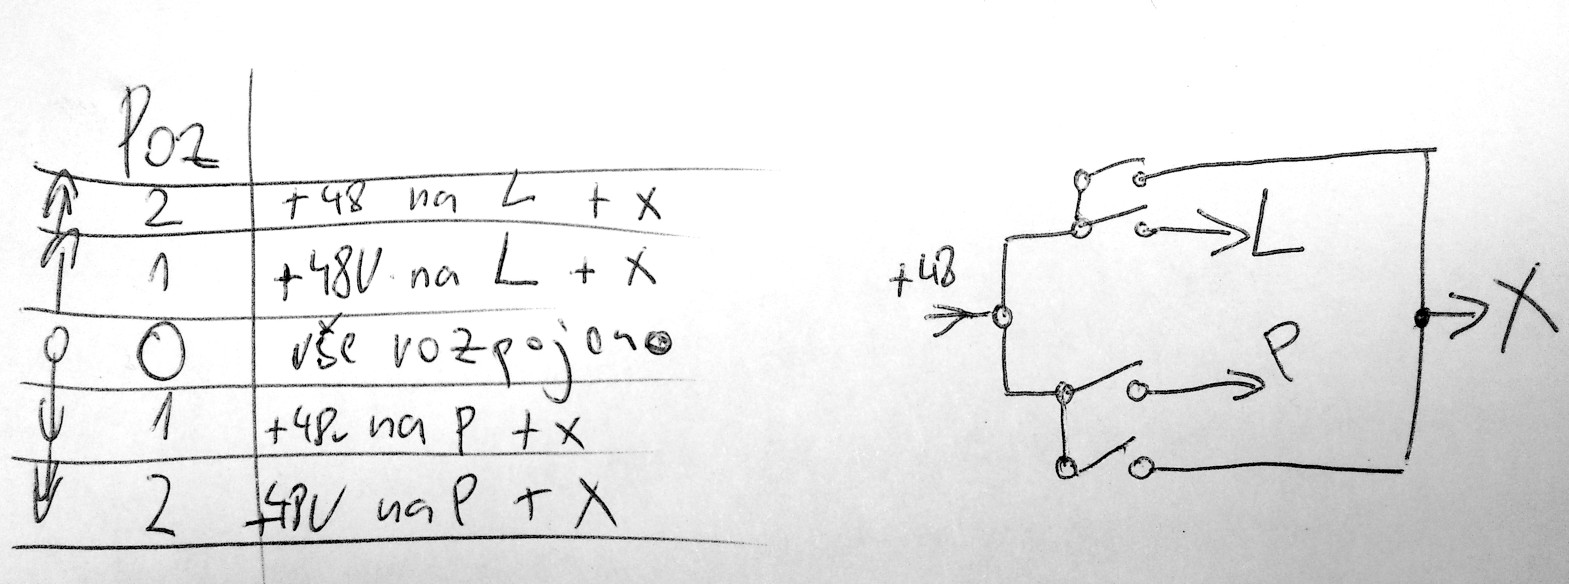 Poz
2 +48 na L + X
1 +48V na L + X
0 vše rozpojeno
1 +48V na P + X
2 +48V na P + X
+48
L
P
X